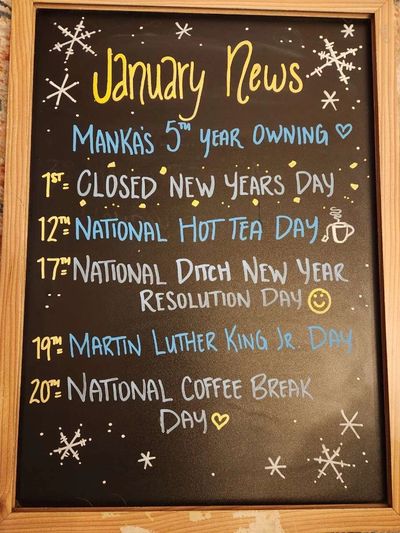 January News
MANKA'S 5TH YEAR OWNING ♡
1ST= CLOSED NEW YEARS DAY
12TH= NATIONAL HOT TEA DAY
17TH= NATIONAL DITCH NEW YEAR
RESOLUTION DAY ☺
19TH= MARTIN LUTHER KING JR. DAY
20TH= NATIONAL COFFEE BREAK
DAY ♡